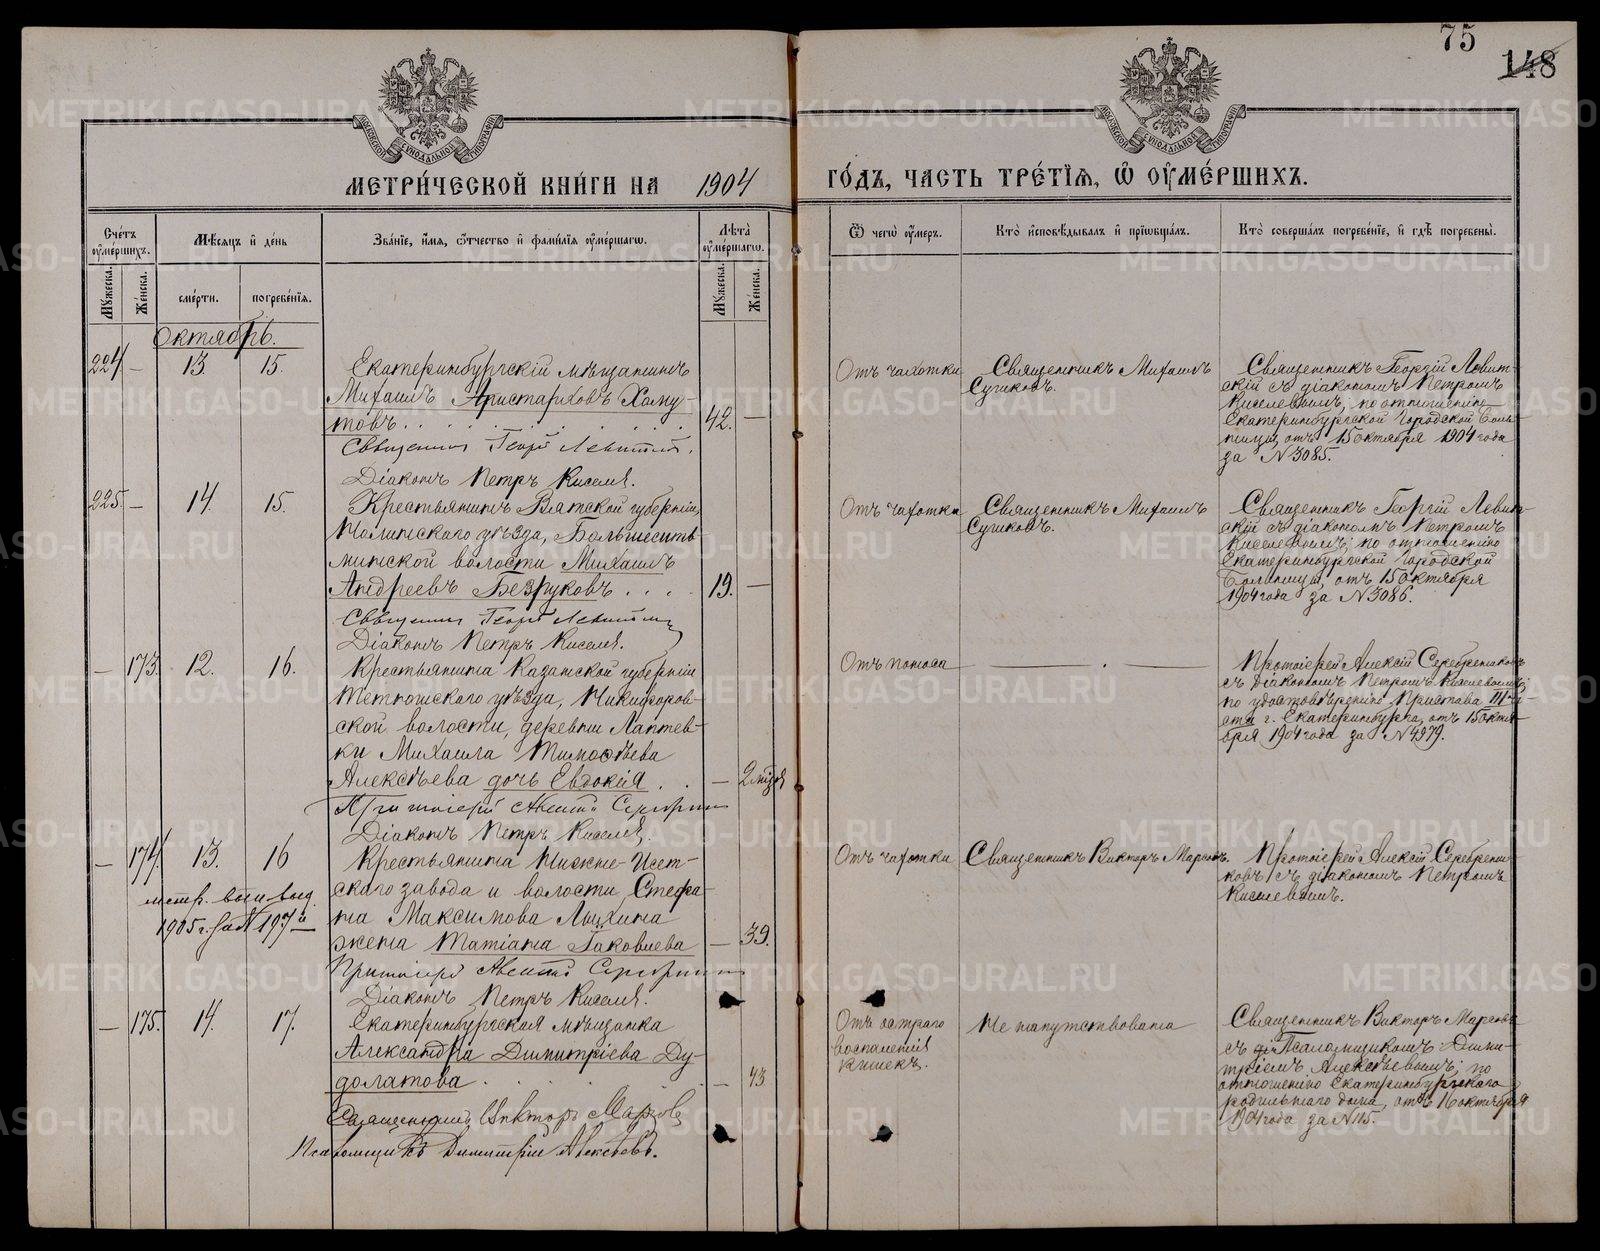 75
148
МЕТРИ́ЧЕСКОЙ КНИ́ГИ НА 1904 ГО́ДЪ, ЧАСТЬ ТРЕ́ТІѦ, Ѽ ОУ҆МЕ́РШИХЪ.
Сче́тъ оу҆ме́ршихъ.
Мѣ́сяцъ и҆ де́нь
Зва́ніе, и҆́мя, ѻ҆́тчество и҆ фами́лія оу҆ме́ршагѡ.
Лѣ́та оу҆ме́ршагѡ.
Ѿ чегѡ̀ оу҆́меръ.
Кто̀ и҆сповѣ́дывалъ и҆ пріѡбща́лъ.
Кто̀ соверша́лъ погребе́ніе, и҆ гдѣ̀ погребены̀.
Му́жеска.
Же́нска.
сме́рти.
погребе́нія.
Му́жеска.
Же́нска.
Октябрь.
224 — 13. 15.
Екатеринбургскій мѣщанинъ
Михаилъ Аристарховъ Хому-
товъ . . . . . . . . 42. —
Священникъ Георгій Левитскій.
Діаконъ Петръ Киселев.
Отъ чахотки
Священникъ Михаилъ
Сушковъ.
Священникъ Георгій Левит-
скій съ діакономъ Петромъ
Киселевымъ; по отношенію
Екатеринбургской Городской Боль-
ницы, отъ 15 октября 1904 года
за N 3085.
225. — 14. 15.
Крестьянинъ Вятской губерніи,
Нолинскаго уѣзда, Большеситъ-
минской волости Михаилъ
Андреевъ Безруковъ . . . . 19. —
Священник Георгій Левитскій
Діаконъ Петръ Киселев.
Отъ чахотки
Священникъ Михаилъ
Сушковъ.
Священникъ Георгій Левит-
скій съ діакономъ Петромъ
Киселевымъ; по отношенію
Екатеринбургской Городской
Больницы, отъ 15 октября
1904 года за N 3086.
— 173. 12. 16.
Крестьянина Казанской губерніи
Тетюшскаго уѣзда, Никифоров-
ской волости, деревни Лаптев-
ки Михаила Тимоѳѣева
Алексѣева дочь Евдокія . . — 2 мѣся
Протоіерей Алексій
Діаконъ Петръ Киселев.
Отъ поноса
— . —
Протоіерей Алексій Серебрениковъ
съ Діакономъ Петромъ Киселевымъ;
по удостовѣренію Пристава III-й
части г. Екатеринбурга, отъ 15 октя-
бря 1904 года за N 4979.
— 174. 13. 16
Крестьянина Нижне-Исет-
скаго завода и волости, Стефа-
на Максимова Лыхина
жена Татіана Іаковлева — 39.
метр. вып. выд.
1905 г. за N 197й
Протоіерей Алексій
Діаконъ Петръ Киселев.
Отъ чахотки
Священникъ Викторъ Марковъ.
Протоіерей Алексій Серебрени-
ковъ съ діакономъ Петромъ
Киселевымъ.
— 175. 14. 17.
Екатеринбургская мѣщанка
Александра Димитріева Ду-
долатова . . . . . — 43
Священникъ Викторъ Марковъ
Псаломщикъ Димитрій Алексѣевъ.
Отъ остраго
воспаленія
кишекъ.
Не напутствована
Священникъ Викторъ Марковъ
съ Псаломщикомъ Дими-
тріемъ Алексѣевымъ; по
отношенію Екатеринбургскаго
родильнаго дома, отъ 16 октября
1904 года за N 115.
METRIKI.GASO-URAL.RU